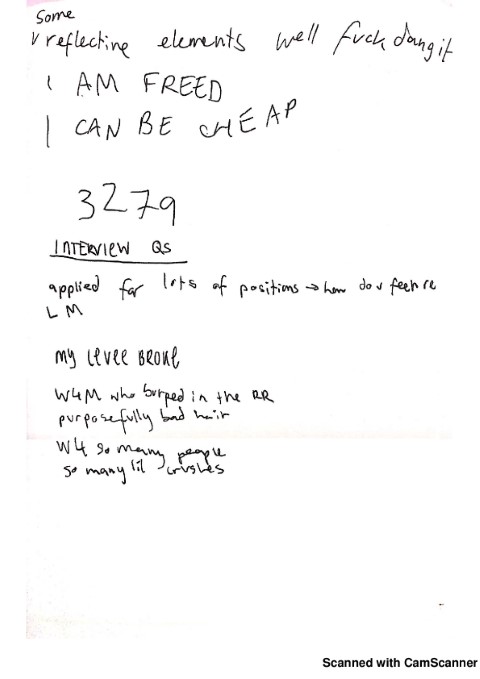 Some
v reflecting elements well fuck dang it
I AM FREED
I CAN BE CHEAP
3279
INTERVIEW QS
applied for lots of positions → how do u feel re
LM
my levee broke
W4M who burped in the RR
purposefully bad hair
W4 so many people
so many lil crushes
Scanned with CamScanner